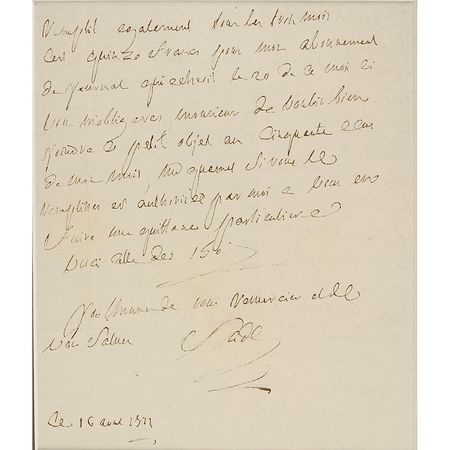 remplit egalement tous les trois mois
C'est quinze francs pour mon abonnement
de journal qui echeoit le 20 de ce mois ci
vous m'obligerez monsieur de vouloir bien
joindre ce petit objet au Cinquante ecus
de mon mois,
remplissez est authorisée par moi a vous en
faire une quittance particuliere
celle de 150
J'ai l'honneur de vous remercier et de
vous saluer Sade
Ce 16 avril 1811